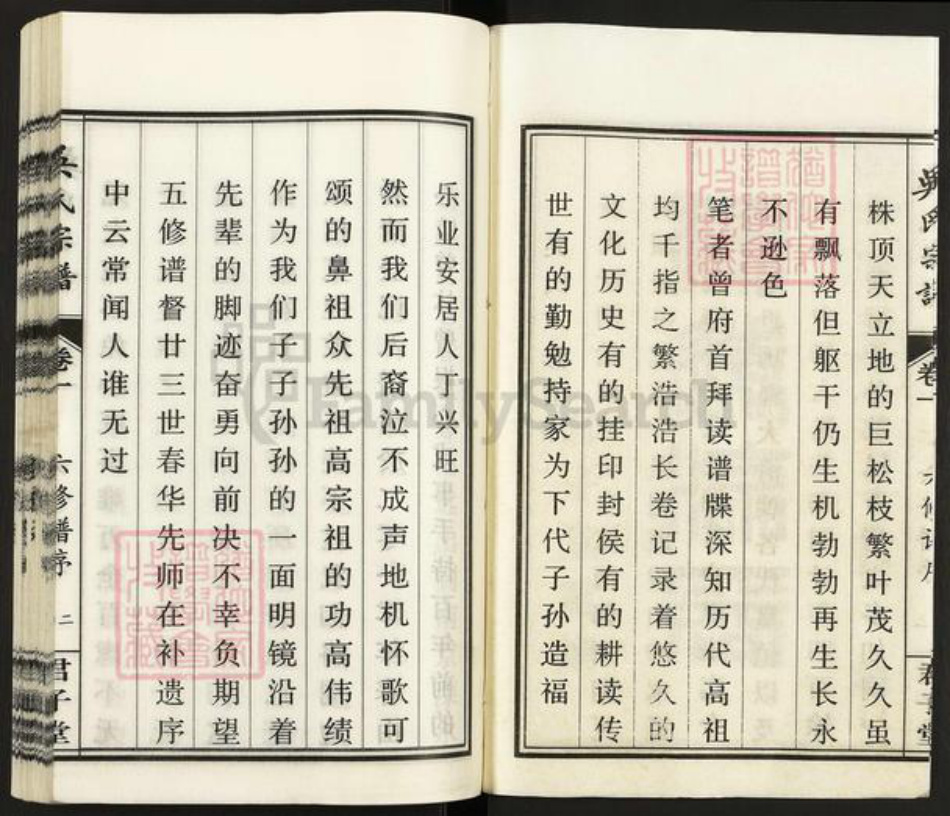 株顶天立地的巨松枝繁叶茂久久虽
有飘落但躯干仍生机勃勃再生长永
不逊色
笔者曾府首拜读谱牒深知历代高祖
均千指之繁浩浩长卷记录着悠久的
文化历史有的挂印封侯有的耕读传
世有的勤勉持家为下代子孙造福
乐业安居人丁兴旺
然而我们后裔泣不成声地机怀歌可
颂的鼻祖众先祖高宗祖的功高伟绩
作为我们子子孙孙的一面明镜沿着
先辈的脚迹奋勇向前决不幸负期望
五修谱督廿三世春华先师在补遗序
中云常闻人谁无过
吴氏宗谱 卷一 六修谱序 二 君子堂
FamilySearch